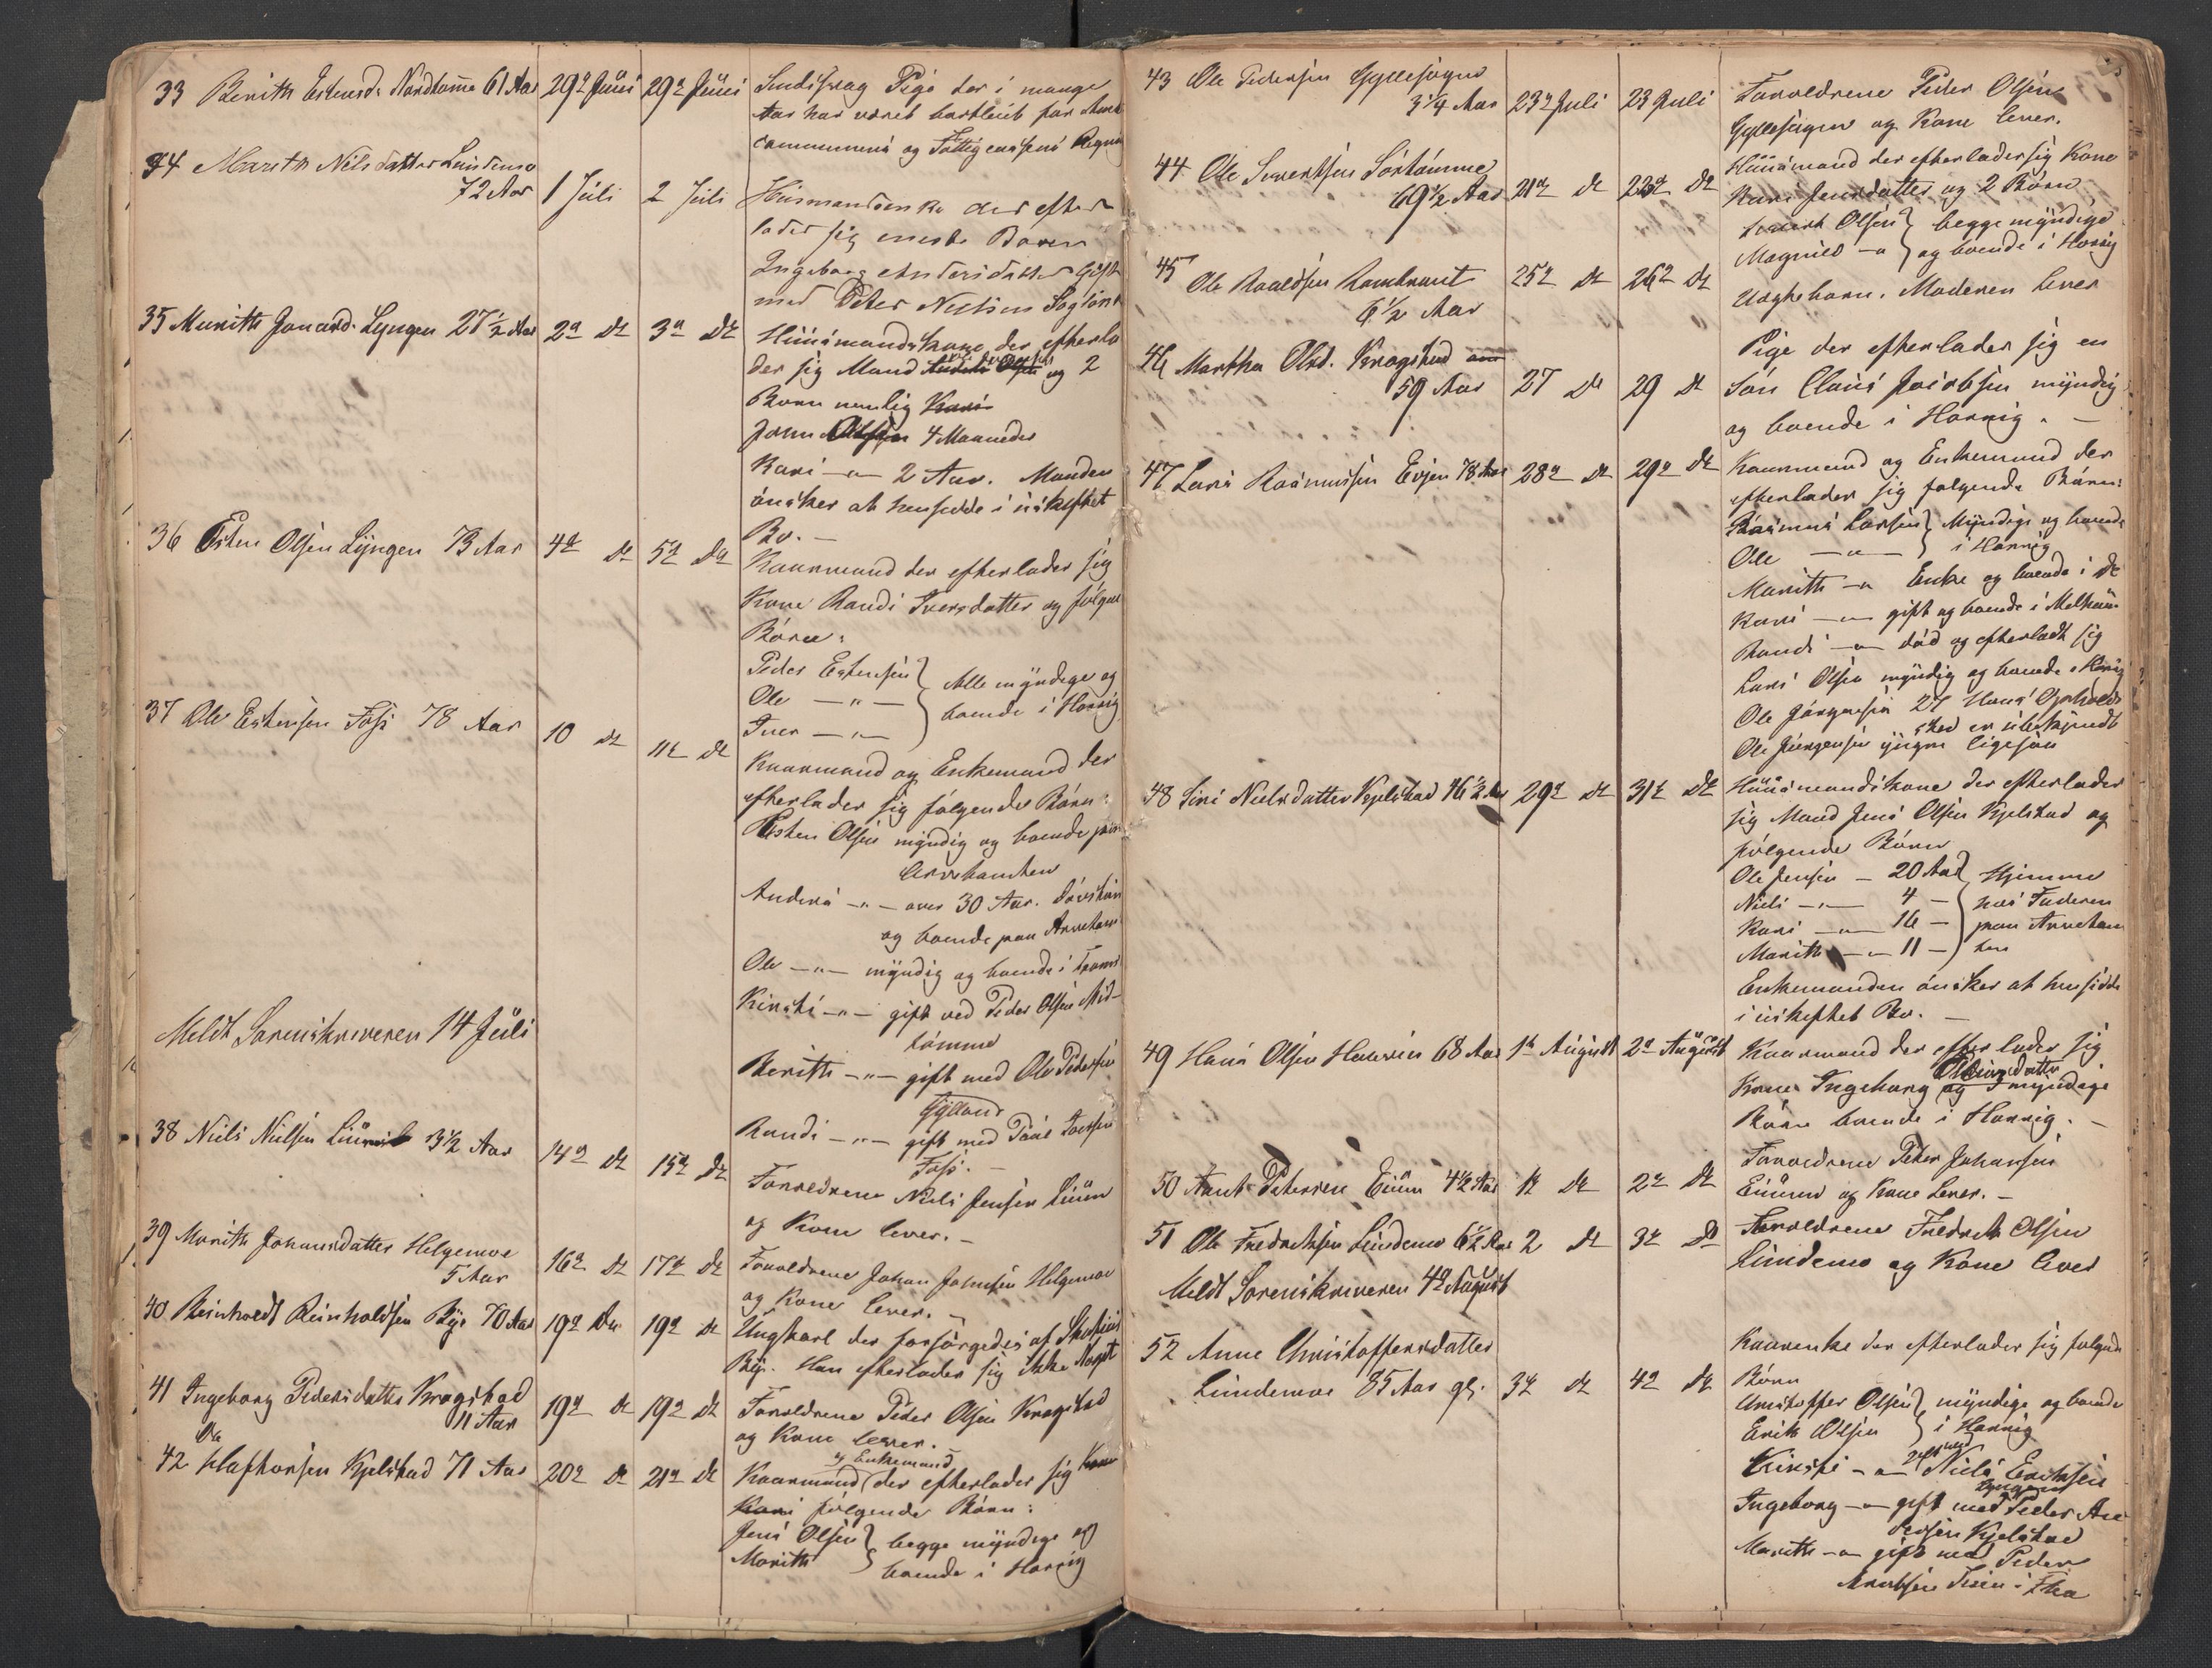 33 Berith Estensd. Nordtømme 61 Aar 29de Juni 29de Juni Sindssvag Pige der i mange
Aar har været bortleiet for Amts
communens og Fattigcassens Regning
34 Marith Nilsdatter Lundemo
72 Aar 1 Juli 2 Juli Huusmandsenke der efter
lader sig eneste Barn
Ingeborg Andersdatter Gift
med Peter Nielsen
35 Marith Jonasd. Lyngen 27½ Aar 2de Dt 3de Dt Huusmandskone der efterla
der sig Mand og 2
Børn nemlig Kari
John Olsen 4 Maaneder
Kari —"— 2 Aar. Manden
ønsker at hensidde i uskiftet
Bo. —
36 Esten Olsen Lyngen 73 Aar 4de Dt 5te Dt Kaarmand der efterlader sig
Kone Randi Iversdatter og følgende
Børn:
Peder Estensen } Alle myndige og
Ole —"— boende i Horrig
Iver —"—
37 Ole Estensen Foss 78 Aar 10 Dt 11te Dt Kaarmand og Enkemand der
efterlader sig følgende Børn:
Esten Olsen myndig og boende paa
Arvetomten
Anders —"— over 30 Aar. døvstum
og boende paa Arvetomt
Ole —"— myndig og boende i Tromsø
Kirsti —"— gift ved Peder Olsen Mid-
tømme
Berith —"— gift med Ole Pedersen
Gylland
Randi —"— gift med Paul
Foss. —
Meldt Sorenskriveren 14 Juli
38 Niels Nielsen 3½ Aar 14de Dt 15de Dt Forældrene Niels Jensen
og Kone lever. —
39 Marith Johansdatter Helgemoe
5 Aar 16de Dt 17de Dt Forældrene Johan Johnsen Helgemoe
og Kone lever. —
40 Reinholdt Reinholdsen Bye 70 Aar 19de Dt 19de Dt Ungkarl der forsørgedes af
Bye. Han efterlader sig ikke Noget
41 Ingeborg Pedersdatter Krogstad
11 Aar 19de Dt 19de Dt Forældrene Peder Olsen Krogstad
og Kone lever.
42 Ole Hafthorsen Kjelstad 71 Aar 20de Dt 21de Dt Kaarmand og Enkemand der efterlader sig Kone
Kari følgende Børn:
Jens Olsen } begge myndige og
Marith boende i Horrig
43 Ole Pedersen Gyllesøgne
3¼ Aar 23de Juli 23 Juli Forældrene Peder Olsen
Gyllesøgne og Kone lever.
44 Ole Sivertsen Sørtømme
69½ Aar 21de Dt 22de Dt Huusmand der efterlader sig Kone
Kari Jensdatter og 2 Børn
Sivert Olsen } begge myndige
Magnild —" og boende i Horrig
45 Ole Roaldsen Rambraut
6½ Aar 25de Dt 26de Dt Uægte barn. Moderen lever
46 Martha Olsd. Krogstad
59 Aar 27 Dt 29 Dt Pige der efterlader sig en
Søn Claus Jacobsen myndig
og boende i Horrig. —
47 Lars Rasmussen Evjen 78 Aar 28de Dt 29de Dt Kaarmand og Enkemand der
efterlader sig følgende Børn:
Rasmus Larsen } Myndige og boende
Ole —"— i Horrig
Marith —" Enke og boende i Dt
Kari —"— gift og boende i Melhuus
Randi —"— død og efterladt sig
Lars Olsen myndig og boende i Horrig
Ole Jørgensen 27 Hans Opholds
sted er ubekjendt
Ole Jørgensen yngre ligesaa
48 Siri Nielsdatter Kjelstad 46½ Aar 29de Dt 31te Dt Huusmandskone der efterlader
sig Mand Jens Olsen Kjelstad og
følgende Børn
Ole Jensen — 20 Aar } Hjemme
Niels —"— 4 — hos Faderen
Kari —"— 16 — paa Arvetom
Marith —"— 11 — ten
Enkemanden ønsker at hensidde
i uskiftet Bo. —
49 Hans Olsen 68 Aar 1te August 2de August Kaarmand der efterlader sig
Kone Ingeborg Olsdatter og myndige
Børn boende i Horrig. —
50 Arnt Petersen 4½ Aar 1te Dt 2de Dt Forældrene Peter Johansen
og Kone lever. —
51 Ole Fredriksen Lundemo 6½ Aar 2 Dt 3de Dt Forældrene Fredrik Olsen
Lundemo og Kone lever
Meldt Sorenskriveren 4de August
52 Anne Christoffersdatter
Lundemoe 85 Aar gl. 3de Dt 4de Dt Kaarenke der efterlader sig følgende
Børn
Christoffer Olsen } myndige og boende
Erik Olsen i Horrig
Kirsti —"— gift med Niels Eriksen
Lyngen
Ingeborg —"— gift med Peder An
dersen Kjelstad
Marith —"— gift med Peder